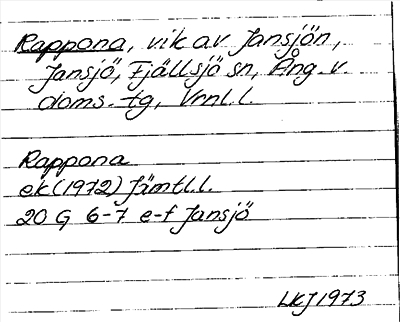 Rappona, vik av Jansjön,
Jansjö, Fjällsjö sn, Ång. v.
doms. tg, Vrnl.l.
Rappona
ek (1972) Jämtl.l.
20 G 6-7 e-f Jansjö
LKJ 1973